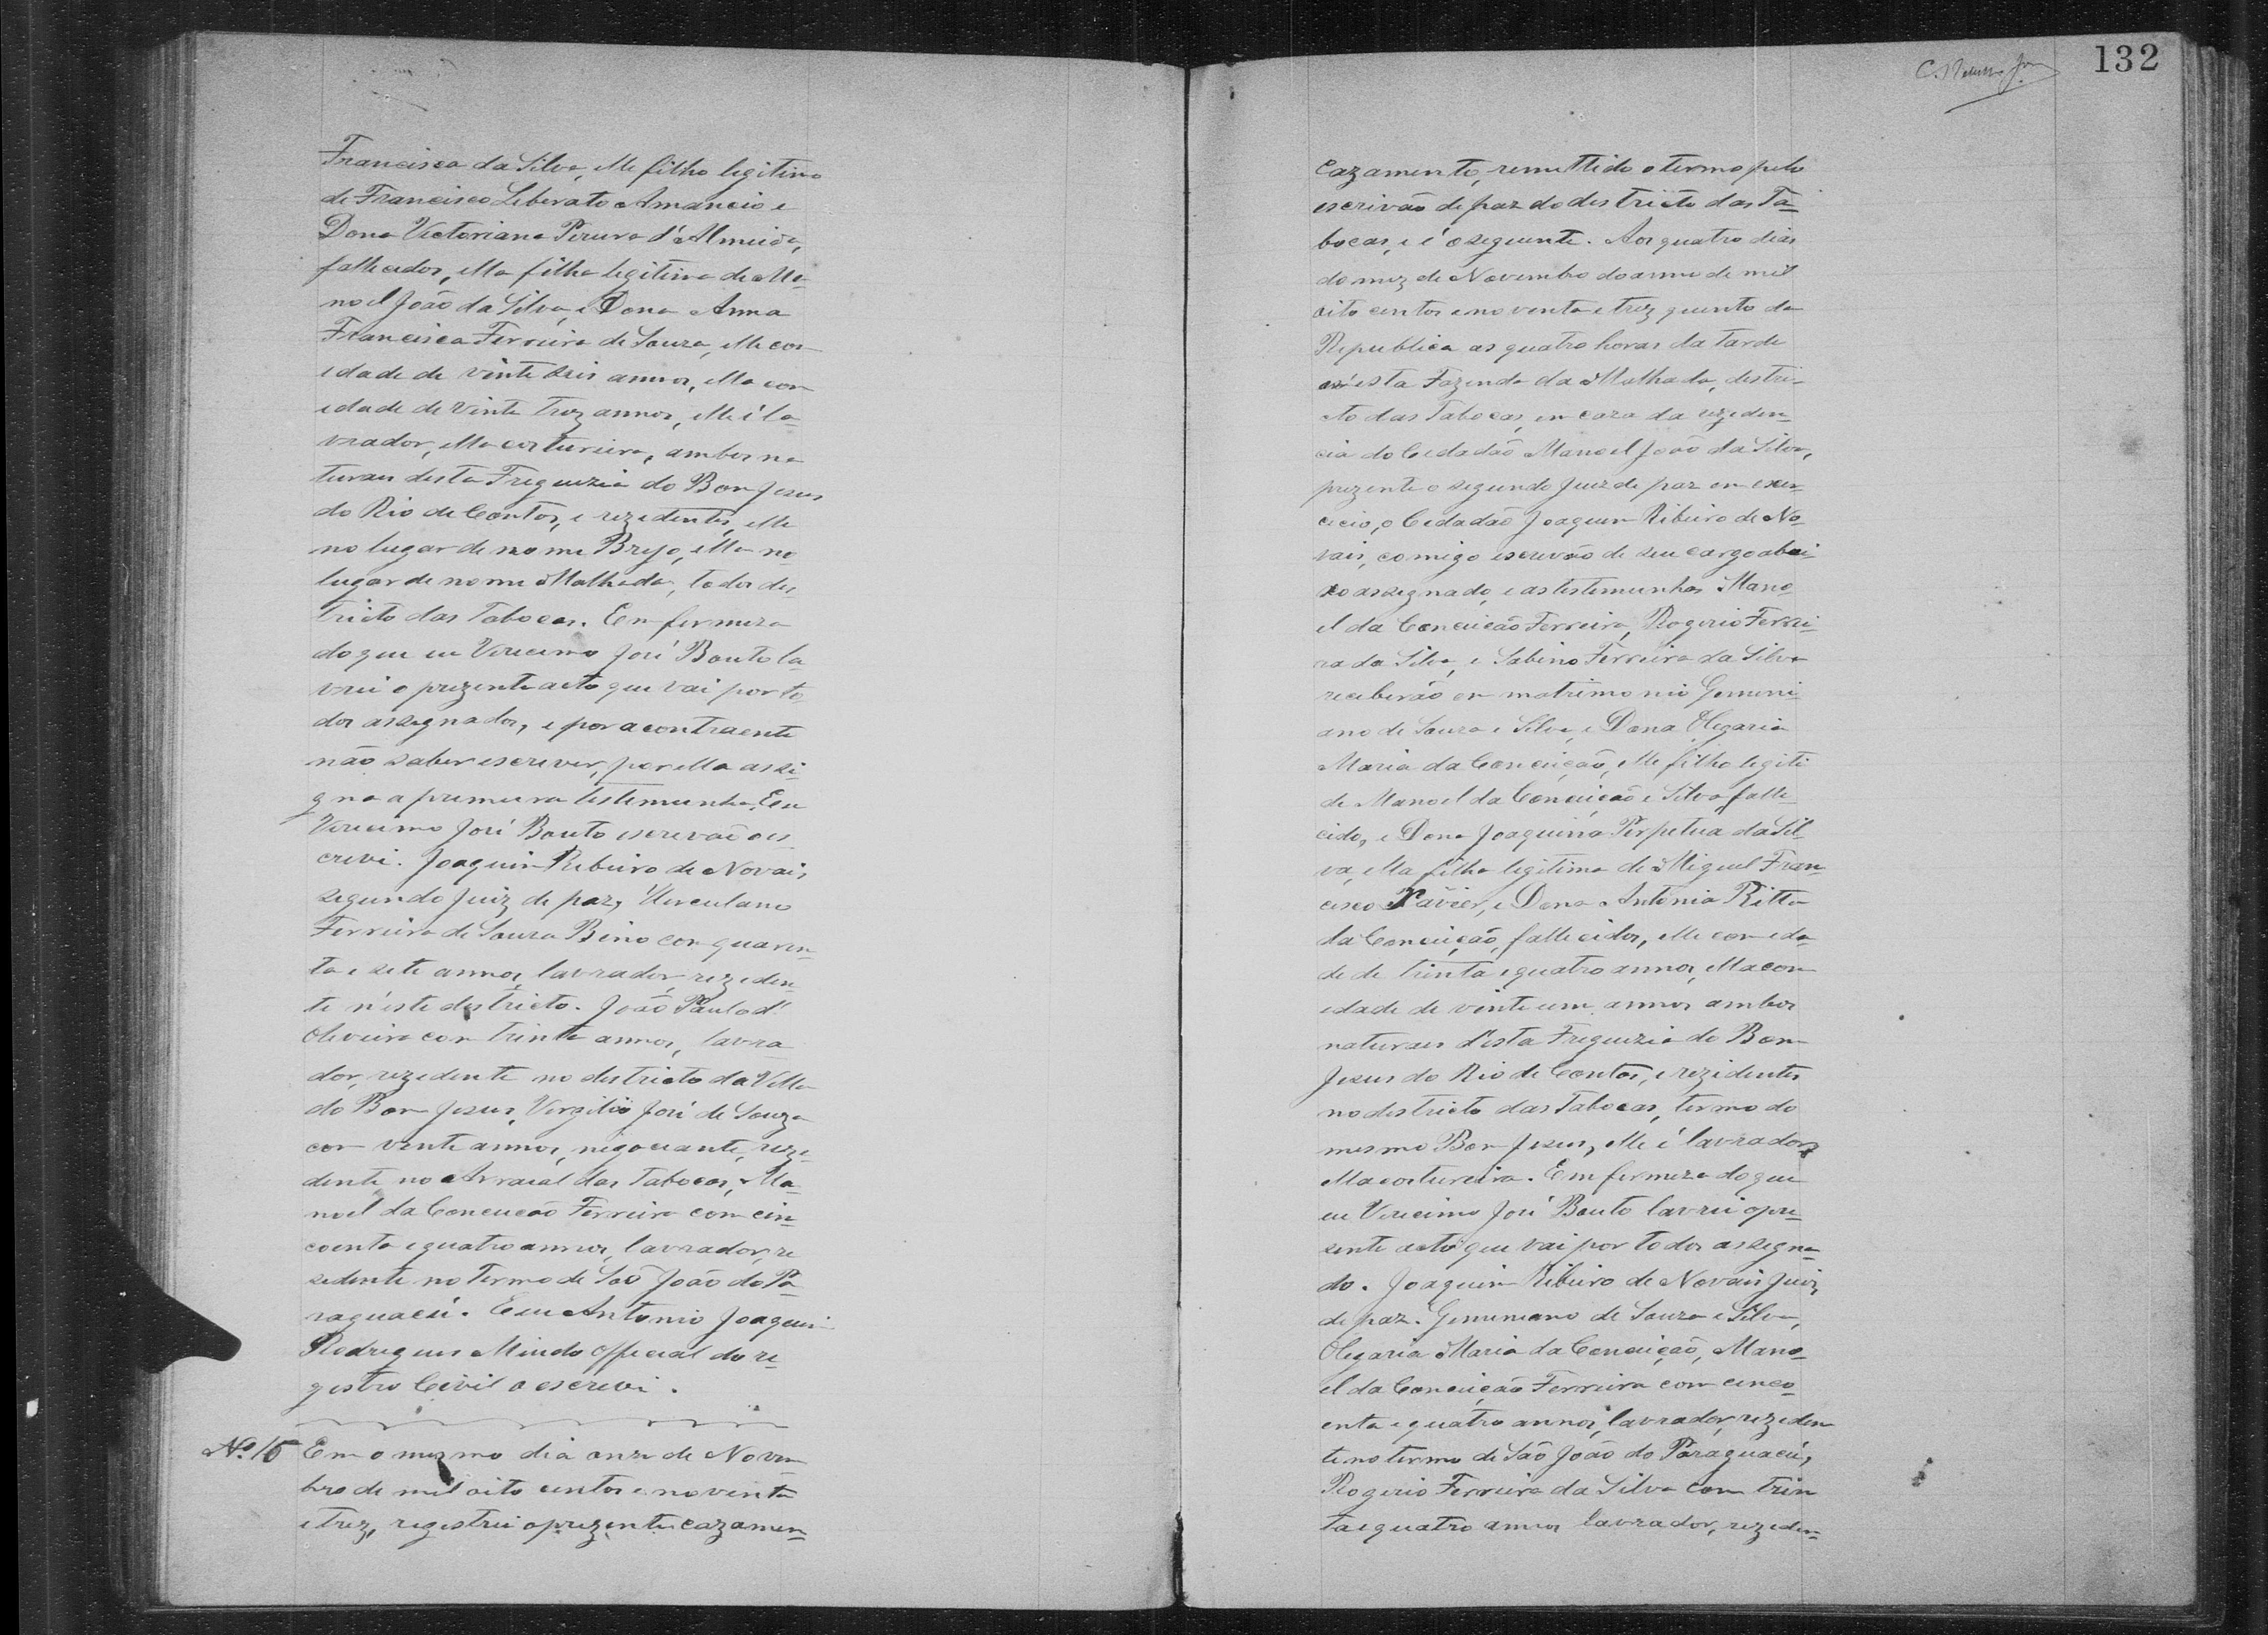 Francisca da Silva, elle filho legitimo
de Francisco Liberato Amancio e
Dona Victoriana Pereira d'Almeida,
fallecidos, ella filha legitima de Ma-
noel João da Silva, e Dona Anna
Francisca Ferreira de Souza, elle com
edade de vinte seis annos, ella com
edade de vinte trez annos, elle é la-
vrador, ella costureira, ambos na
turaes desta Freguezia do Bom Jesus
do Rio de Contas, e rezedentes, elle
no lugar de nome Brejo, ella no
lugar de nome Malhada, todos des
tricto das Tabocas. Em fermeza
do que eu Verecimo José Bouto la-
vrei o prezente acto que vai por to-
dos assegnados, e por a contraente
não saber escrever, por ella assi-
gna a primeira testemunha. Eu
Verecimo José Bouto escrevão o es-
crevi. Joaquim Ribeiro de Novais,
segundo Juiz de paz, Herculano
Ferreira de Souza Bino com quaren-
ta e sete annos, lavrador, rezeden-
te n'este destricto. João Paulo d'
Oliveira com trinta annos, lavra-
dor, rezedente no destricto da Villa
do Bom Jesus, Vergilio José de Souza
com vente annos, negociante, reze-
dente no Arraial das Tabocas, Ma-
noel da Conceicão Ferreira com cin-
coenta e quatro annos, lavrador, re
sedente no Termo de São João do Pa-
raguacú. Eu Antonio Joaquim
Rodrigues Mindo Official do re-
gestro Civil o escrevi.
Nº 15 Em o mesmo dia onze de Novem
bro de mil oito centos e noventa
e trez, regestrei o prezente cazamen-
C.
132
Cazamento, remettido o termo pelo
escrivão de paz do destricto das Ta-
bocas, e é o seguente. Aos quatro dias
do mez de Novembro do anno de mil
oito centos e noventa e trez quento da
Republica as quatro horas da tarde
n'esta Fazenda da Malhada, destri-
cto das Tabocas, em caza da rezeden-
cia do Cedadão Manoel João da Silva,
prezente o segundo Juiz de paz em exer-
cicio, o Cedadão Joaquim Ribeiro de No-
vais, comigo escrevão de seu cargo abai-
xo assegnado, e as testemunhas Mano-
el da Conceicão Ferreira, Rogerio Ferrei-
ra da Silva, e Sabino Ferreira da Silva
receberão em matrimonio Gemini-
ano de Souza e Silva, e Dona Olegaria
Maria da Conceição, elle filho legiti
de Manoel da Conceicão e Silva falle-
cido, e Dona Joaquina Perpetua da Sil-
va, ella filha legitima de Miguel Fran-
cisco Xavier, e Dona Antonia Ritta
da Conceição, fallecidos, elle com eda-
de de trinta e quatro annos, ella com
edade de vinte um annos ambos
naturaes d'esta Freguezia do Bom
Jesus do Rio de Contas, e rezidentes
no destricto das Tabocas, termo do
mesmo Bom Jesus, elle é lavrador,
ella costureira. Em fermeza do que
eu Verecimo José Bouto lavrei o pre-
zente acto que vai por todos assegna-
do. Joaquim Ribeiro de Novais Juiz
de paz. Geminiano de Souza e Silva,
Olegaria Maria da Conceição, Mano-
el da Conceição Ferreira com cinco-
enta e quatro annos, lavrador, rezeden
te no termo de São João do Paraguacú,
Rogerio Ferreira da Silva com trin
ta e quatro annos lavrador, rezeden-